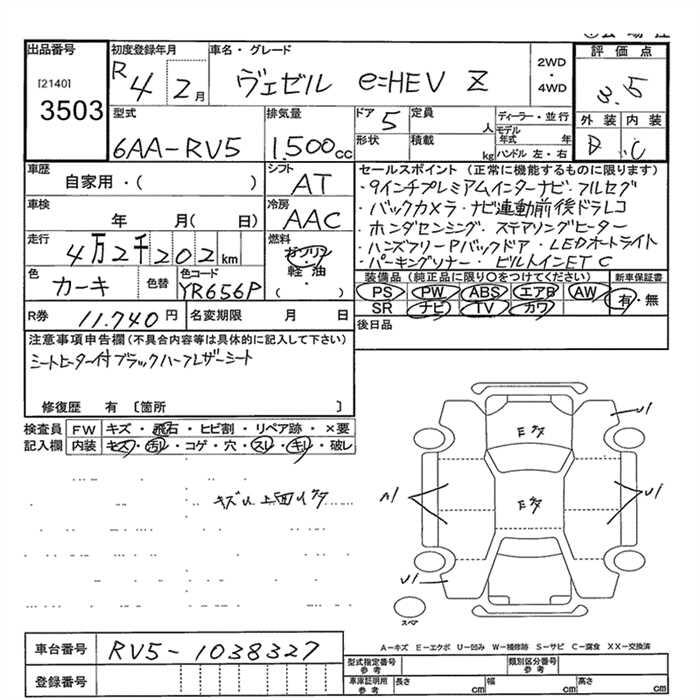 出品番号
[2140]
3503
初度登録年月
R 4 2月
車名・グレード
ヴェゼル e:HEV Z
2WD
・
4WD
評価点
3.5
型式
6AA-RV5
排気量
1.500cc
ドア 5
定員 人
ディーラー・並行
モデル年式 年
形状
積載 kg
ハンドル 左・右
外装 内装
B C
車歴
自家用・( )
シフト
AT
車検
年 月( 日)
冷房
AAC
走行
4万2千202km
燃料
ガソリン
軽油
( )
色
カーキ
色替
色コード
YR656P
R券 11.740円
名変期限 月 日
セールスポイント (正常に機能するものに限ります)
・9インチプレミアムインターナビ・フルセグ
・バックカメラ・ナビ連動前後ドラレコ
・ホンダセンシング・ステアリングヒーター
・ハンズフリーPバックドア・LEDオートライト
・パーキングソナー・ビルトインETC
装備品 (純正品に限り○をつけてください)
新車保証書
PS PW ABS エアB AW
SR ナビ TV カワ
有・無
後日品
注意事項申告欄(不具合内容等は具体的に記入して下さい)
シートヒーター付ブラックハーフレザーシート
修復歴 有 〔箇所 〕
検査員記入欄
FW キズ・飛石・ヒビ割・リペア跡・×要
内装 キズ・汚レ・コゲ・穴・スレ・キレ・破レ
Eクタ
Eクタ
U1
A1
U1
U1
スペア
A-キズ E-エクボ U-凹み W-補修跡 S-サビ C-腐食 XX-交換済
車台番号 RV5-1038327
登録番号
型式指定番号 参考
類別区分番号 参考
車庫証明用 参考
長さ cm
幅 cm
高さ cm